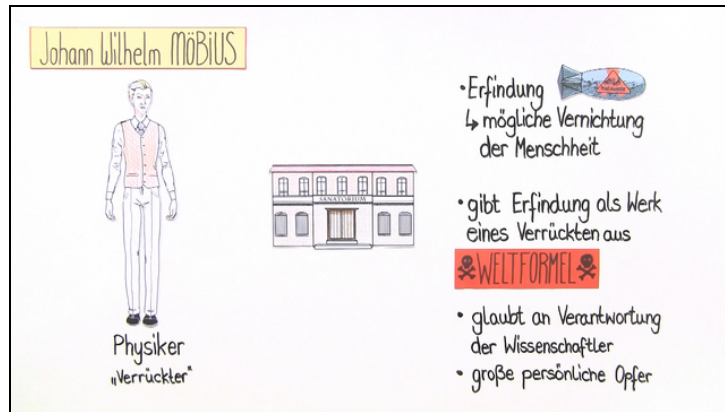 Johann Wilhelm MÖBIUS
Physiker
„Verrückter“
SANATORIUM
• Erfindung
↳ mögliche Vernichtung
der Menschheit
• gibt Erfindung als Werk
eines Verrückten aus
WELTFORMEL
• glaubt an Verantwortung
der Wissenschaftler
• große persönliche Opfer